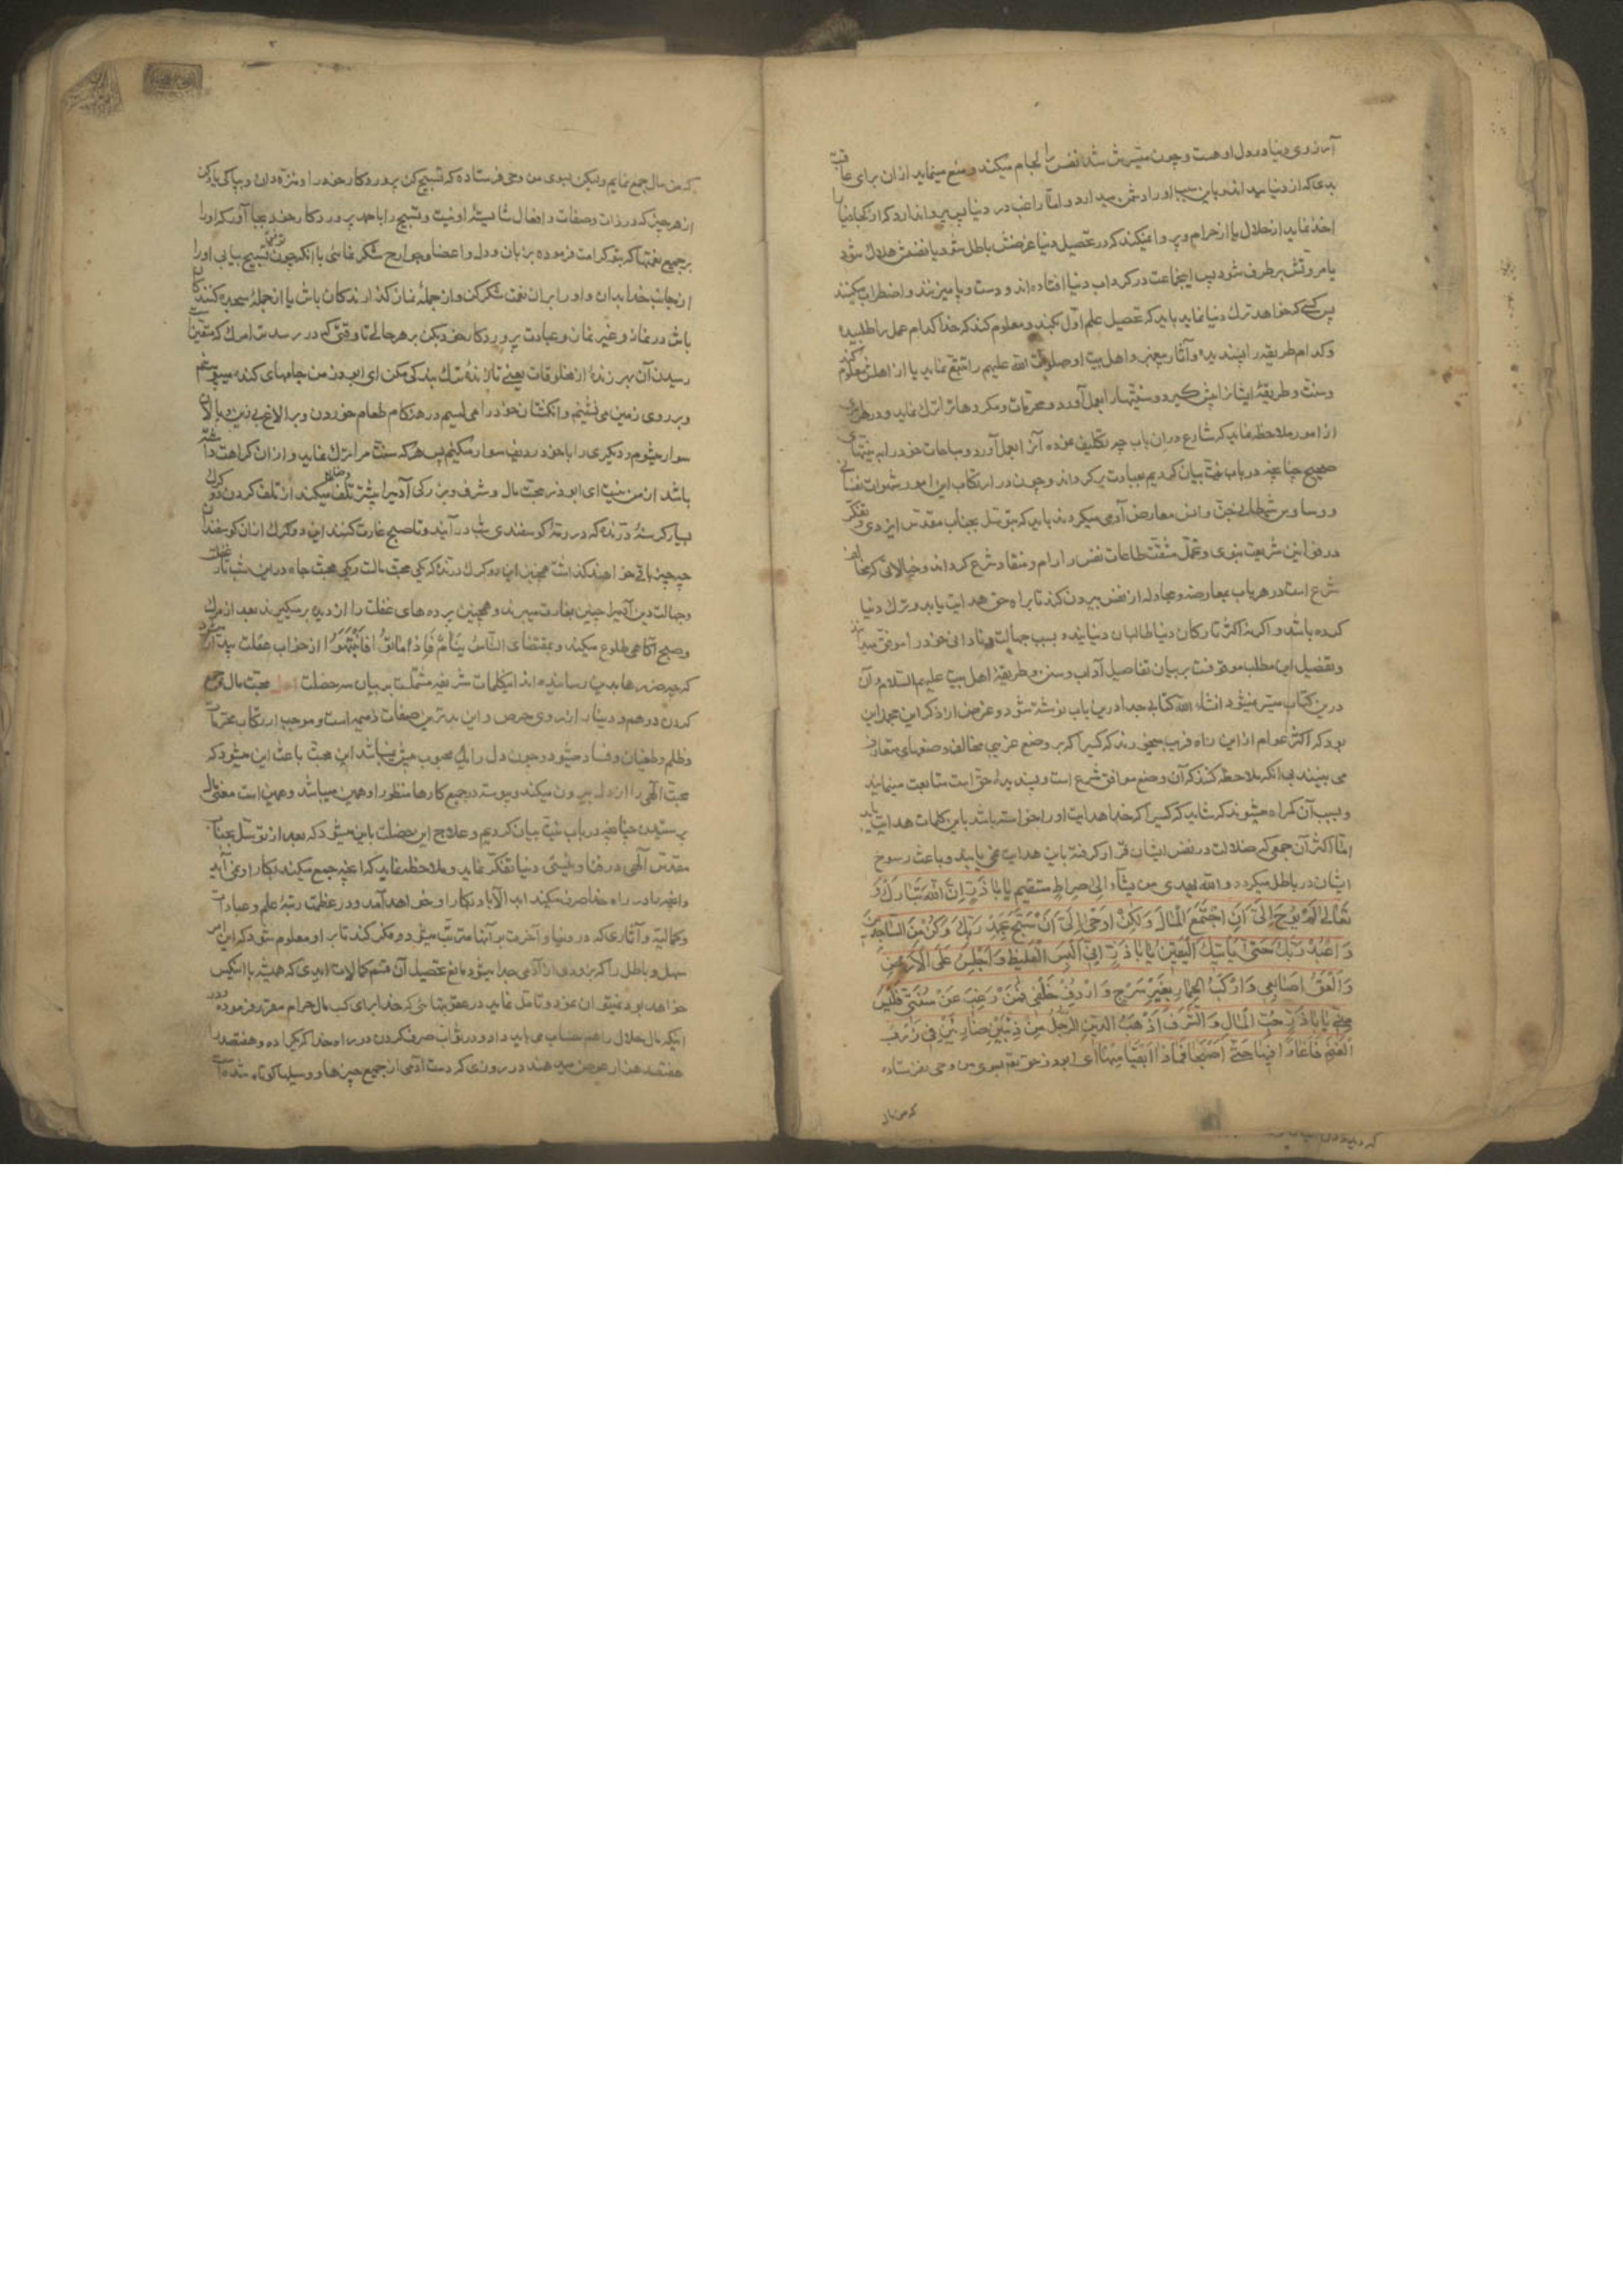 آرزوی دنیا در دل او هست و چون میسرش شد نفس را لجام میکند و منع مینماید از آن برای عاقبت
بدی که از دنیا میداند و باین سبب او را دشمن میدارد و اما راغب در دنیا پس پروا ندارد که از کجا دنیا را
اخذ نماید از حلال یا از حرام و پروا نمیکند که در تحصیل دنیا عرضش باطل شود یا نفسش هلاک شود
یا مروتش برطرف شود پس اینجماعت در گرداب دنیا افتاده‌اند و دست و پا میزنند و اضطراب میکنند
پس کسی که خواهد ترک دنیا نماید باید که تحصیل علم اول بکند و معلوم کند که خدا کدام عمل را طلبیده
و کدام طریقه را پسندیده و آثار پیغمبر و اهل بیت او صلوات الله علیهم را تتبع نماید یا از اهلش معلوم کند
و سنت و طریقهٔ ایشانرا پیش گیرد و سنتها را بعمل آورد و محرمات و مکروهات را ترک نماید و در هر امری
از امور ملاحظه نماید که شارع در آن باب چه تکلیف نموده آنرا بعمل آورد و مباحات خود را به نیتهای
صحیح چنانچه در باب نیت بیان کردیم بعبادت برگرداند و چون در ارتکاب این امور شهوات نفسانی
و وساوس شیطان جن و انس معارض آدمی میگردند باید که بتوسل بجناب مقدس ایزدی و تفکر
در قوانین شریعت نبوی و تحمل مشقت طاعات نفس را رام و منقاد شرع گرداند و خیالاتی که مخالف
شرع است در هر باب بمعارضه و مجادله از نفس بیرون کند تا براه حق هدایت یابد و ترک دنیا
کرده باشد و اگر نه اکثر تارکان دنیا طالبان دنیایند و بسبب جهالت و نادانی خود را موفق میدانند
و تفصیل این مطلب موقوفست بر بیان تفاصیل آداب و سنن و طریقهٔ اهل بیت علیهم السلام و آن
درین کتاب میسر نمیشود انشاء الله کتابی جدا درین باب نوشته شود و غرض از ذکر این مجمل این
بود که اکثر عوام ازین راه فریب میخورند که کسی را که بر وضع غریبی مخالف وضعهای متعارف
می بینند بی آنکه ملاحظه کنند که آن وضع موافق شرع است و پسندیدهٔ حق است متابعت مینمایند
و بسبب آن گمراه میشوند که شاید که کسی را که خدا هدایت او را خواسته باشد باین کلمات هدایت یابد
اما اکثر آن جمعی که ضلالت در نفس ایشان قرار گرفته باین هدایت نمی یابند و باعث رسوخ
ایشان در باطل میگردد و الله یهدی من یشآء الی صراط مستقیم یا با ذر ان الله تبارک و
تعالی لم یوح الی ان اجتمع المال ولکن اوحی الی ان سبح بحمد ربک وکن من الساجدین
واعبد ربک حتی یاتیک الیقین یا با ذر انی البس الغلیظ واجلس علی الارض
والعق اصابعی وارکب الحمار بغیر سرج واردف خلفی فمن رغب عن سنتی فلیس
منی یا با ذر حب المال والشرف اذهب لدین الرجل من ذئبین ضاریین فی زرب
الغنم فاغارا فیها حتی اصبحا فماذا ابقیا منها ای ابوذر حق تعالی بسوی من وحی نفرستاده
که من مال
که من مال جمع نمایم ولیکن بسوی من وحی فرستاده که تسبیح کن پروردگار خود را و منزه دان و بپاکی یاد کن
از هر چیز که در ذات و صفات و افعال شایستهٔ او نیست و تسبیح را با حمد پروردگار خود بجا آور که او را
بر جمیع نعمتها که بتو کرامت فرموده بزبان و دل و اعضا و جوارح شکر نمائی یا آنکه چون توفیق تسبیح بیابی او را
از جانب خدا بدان و او را بر آن نعمت شکر کن و از جملهٔ نماز گذارندگان باش یا از جملهٔ سجده کنندگان
باش در نماز و غیر نماز و عبادت پروردگار خود بکن بر هر حالی تا وقتی که در رسد بتو امرگ که متیقن است
رسیدن آن بهر زندهٔ از مخلوقات یعنی تا زندهٔ ترک بندگی مکن ای ابوذر من جامهای گنده میپوشم
و بر روی زمین می نشینم و انگشتان خود را می لیسم در هنگام طعام خوردن و بر الاغ بی زین و پالان
سوار میشوم و دیگری را با خود ردیف سوار میکنم پس هر که سنت مرا ترک نماید و از آن کراهت داشته
باشد از من نیست ای ابوذر محبت مال و شرف و بزرگی آدمی را بیشتر تلف و ضایع میکند از تلف کردن دو گرگ
بسیار گرسنهٔ درنده که در رمهٔ گوسفندی شب درآیند و تا صبح غارت کنند این دو گرگ از آن گوسفندان
چه چیز باقی خواهند گذاشت همچنین این دو گرگ درنده که یکی محبت مالست و یکی محبت جاه در این شب تار غفلت
و جهالت دین آدمی را چنین بغارت میبرند و همچنین پرده‌های غفلت را از دیده برمیگیرند بعد از مرگ
و صبح آگاهی طلوع میکند و بمقتضای الناس ینام فاذا ماتوا فانتبهوا از خواب غفلت بیدار میشود
که چه ضررها بدین رسانیده‌اند اینکلمات شریفه مشتملست بر بیان سه خصلت اول محبت مال و جمع
کردن درهم و دینار از روی حرص و این بدترین صفات ذمیمه است و موجب ارتکاب محرمات
و ظلم و طغیان و فساد میشود و چون دل را یک محبوب بیش نمیباشد این محبت باعث این میشود که
محبت الهی را از دل بیرون میکند و پیوسته در جمیع کارها منظور او همین میباشد و همین است معنی مال
پرستیدن چنانچه در باب نیت بیان کردیم و علاج این خصلت باین میشود که بعد از توسل بجناب
مقدس الهی در فنا و نیستی دنیا تفکر نماید و ملاحظه نماید که آنچه جمع میکند بکار او نمی آید
و آنچه در راه خدا صرف میکند ابد الآباد بکار او خواهد آمد و در عظمت رتبهٔ علم و عبادات
و کمالات و آثاری که در دنیا و آخرت بر آنها مترتب میشود و فکر کند تا بر او معلوم شود که این امر
سهل و باطل را که بزودی از آدمی جدا میشود مانع تحصیل آن قسم کمالات ابدی که همیشه با اینکس
خواهد بود نمیتوان نمود و تامل نماید در عقوبتهائی که خدا برای کسب مال حرام مقرر فرموده و در
اینکه مال حلال را هم حساب می باید داد و در ثواب صرف کردن در راه خدا که یکی را ده و هفتصد را
هفتصد هزار عوض میدهند در روزی که دست آدمی از جمیع چیزها و وسیلها کوتاه شده است